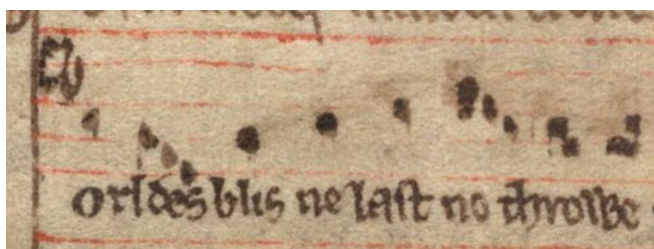 Worldes blis ne last no throwe